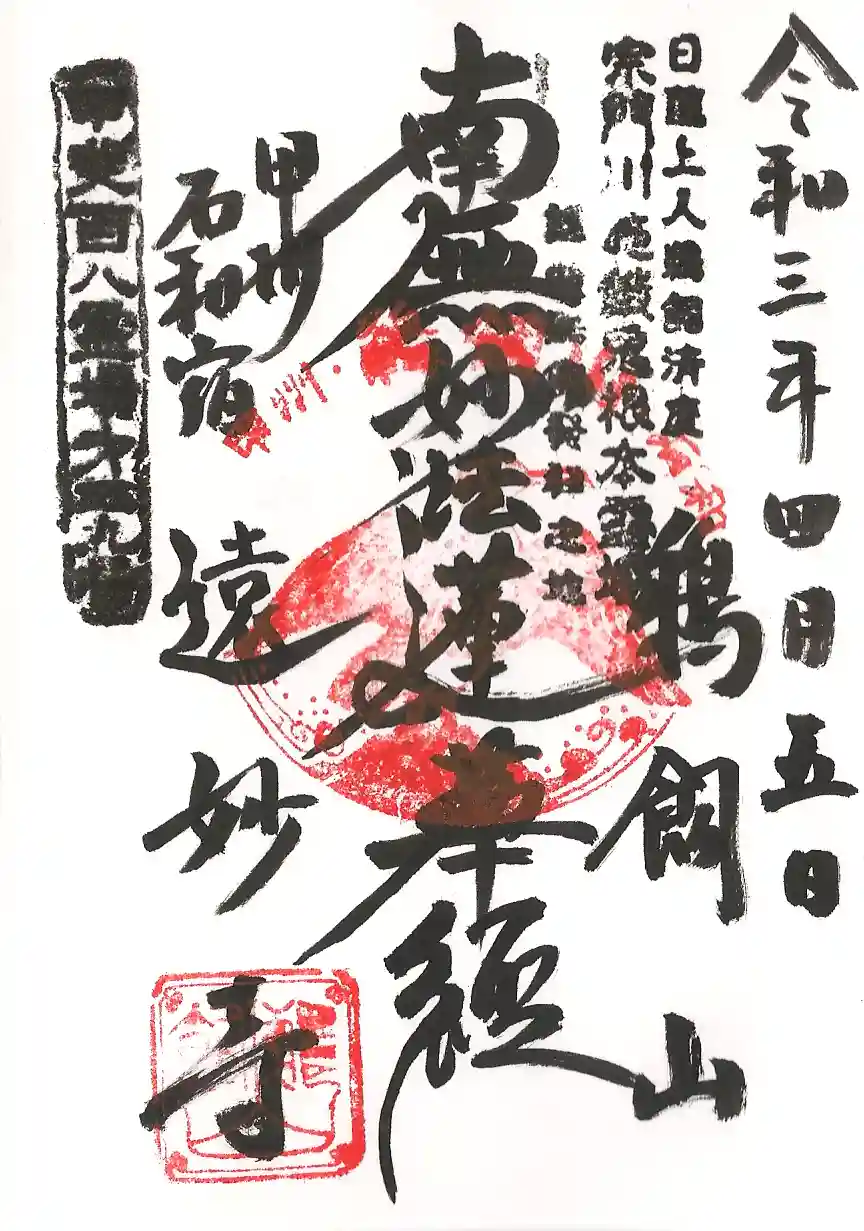 令和三年四月五日
日蓮上人鵜飼済度
宗門川施餓鬼根本霊場
謡曲鵜飼発祥之地
鵜飼山
南無妙法蓮華経
甲州
石和宿
遠妙寺
甲斐百八霊場才四九番